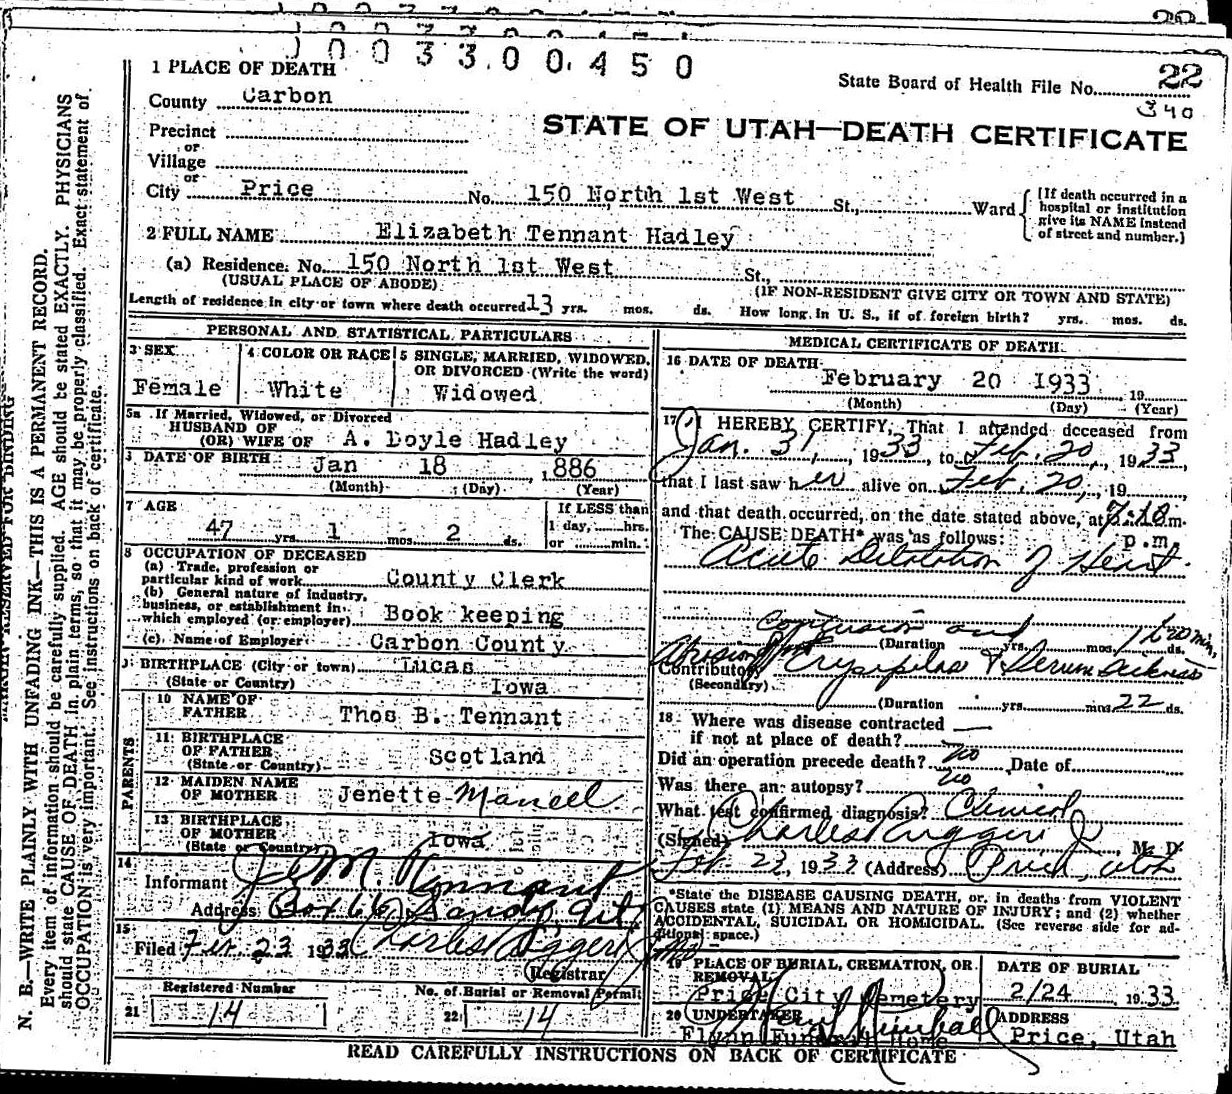 1003300450
1 PLACE OF DEATH
State Board of Health File No. 22
340
County Carbon
STATE OF UTAH—DEATH CERTIFICATE
Precinct
or
Village
or
City Price No. 150 North 1st West St., Ward
(If death occurred in a hospital or institution give its NAME instead of street and number.)
2 FULL NAME Elizabeth Tennant Hadley
(a) Residence. No. 150 North 1st West St.,
(USUAL PLACE OF ABODE) (IF NON-RESIDENT GIVE CITY OR TOWN AND STATE)
Length of residence in city or town where death occurred 13 yrs. mos. ds. How long in U. S., if of foreign birth? yrs. mos. ds.
PERSONAL AND STATISTICAL PARTICULARS
3 SEX Female
4 COLOR OR RACE White
5 SINGLE, MARRIED, WIDOWED, OR DIVORCED (Write the word) Widowed
5a If Married, Widowed, or Divorced
HUSBAND OF
(OR) WIFE OF A. Doyle Hadley
DATE OF BIRTH Jan 18 ,886
(Month) (Day) (Year)
7 AGE 47 yrs. 1 mos. 2 ds.
If LESS than 1 day, hrs. or min.
8 OCCUPATION OF DECEASED
(a) Trade, profession or particular kind of work County Clerk
(b) General nature of industry, business, or establishment in which employed (or employer) Book keeping
(c) Name of Employer Carbon County
BIRTHPLACE (City or town) Lucas
(State or Country) Iowa
PARENTS
10 NAME OF FATHER Thos B. Tennant
11 BIRTHPLACE OF FATHER (State or Country) Scotland
12 MAIDEN NAME OF MOTHER Jenette
13 BIRTHPLACE OF MOTHER (State or Country) Iowa
14 Informant J. M. Tennant
Address Box 66 Sandy, Ut
15 Filed Feb 23 1933 Charles Ruggeri Jr MD
Registrar
Registered Number
21 14
No. of Burial or Removal Permit
22 14
MEDICAL CERTIFICATE OF DEATH
16 DATE OF DEATH February 20 1933 19
(Month) (Day) (Year)
17 I HEREBY CERTIFY, That I attended deceased from
Jan. 31, 1933, to Feb. 20, 1933,
that I last saw her alive on Feb. 20, 19
and that death occurred, on the date stated above, at 7:10 m.
The CAUSE DEATH* was as follows: p.m.
Acute Dilatation of Heart
Contusion and
(Duration yrs. mos. ds.
Contributory Erysipelas & Serum Sickness
(Secondary)
(Duration yrs. mos 22 ds.
18 Where was disease contracted
if not at place of death?
Did an operation precede death? no Date of
Was there an autopsy? no
What test confirmed diagnosis? Clinical
(Signed) Charles Ruggeri Jr M. D.
Feb. 23, 1933 (Address) Price, Utah
*State the DISEASE CAUSING DEATH, or, in deaths from VIOLENT
CAUSES state (1) MEANS AND NATURE OF INJURY; and (2) whether
ACCIDENTAL, SUICIDAL OR HOMICIDAL. (See reverse side for ad-
ditional space.)
19 PLACE OF BURIAL, CREMATION, OR REMOVAL Price City Cemetery
DATE OF BURIAL 2/24 1933
20 UNDERTAKER Flynn Funeral Home
ADDRESS Price, Utah
READ CAREFULLY INSTRUCTIONS ON BACK OF CERTIFICATE
MARGIN RESERVED FOR BINDING
N. B.—WRITE PLAINLY WITH UNFADING INK—THIS IS A PERMANENT RECORD.
Every item of information should be carefully supplied. AGE should be stated EXACTLY. PHYSICIANS
should state CAUSE OF DEATH in plain terms, so that it may be properly classified. Exact statement of
OCCUPATION is very important. See instructions on back of certificate.